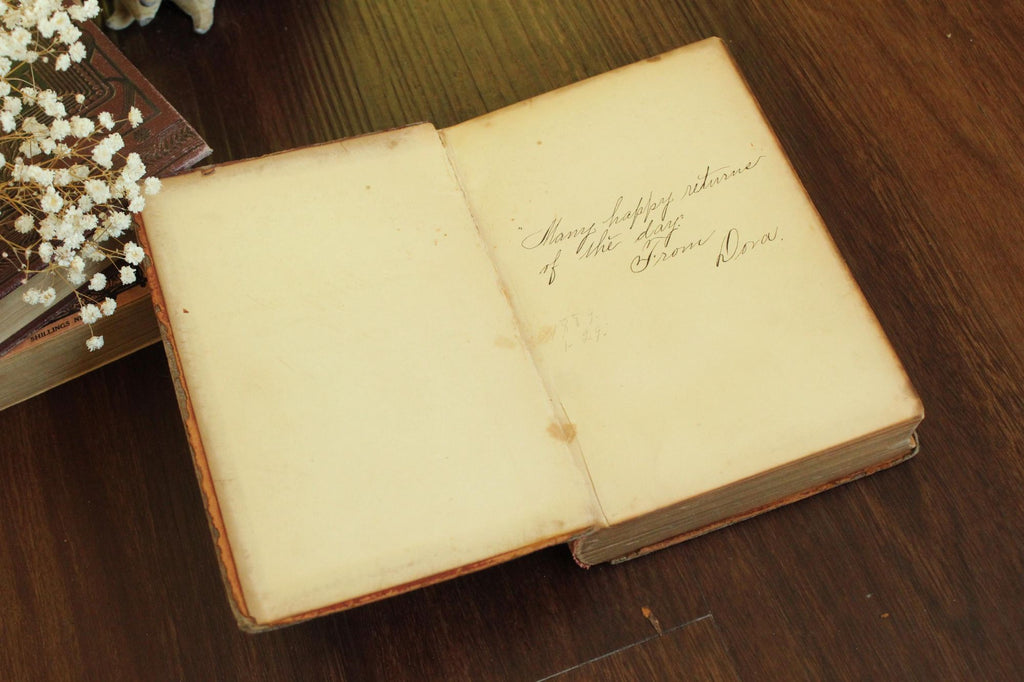 "Many happy returns
of the day"
From Dora.
SHILLINGS